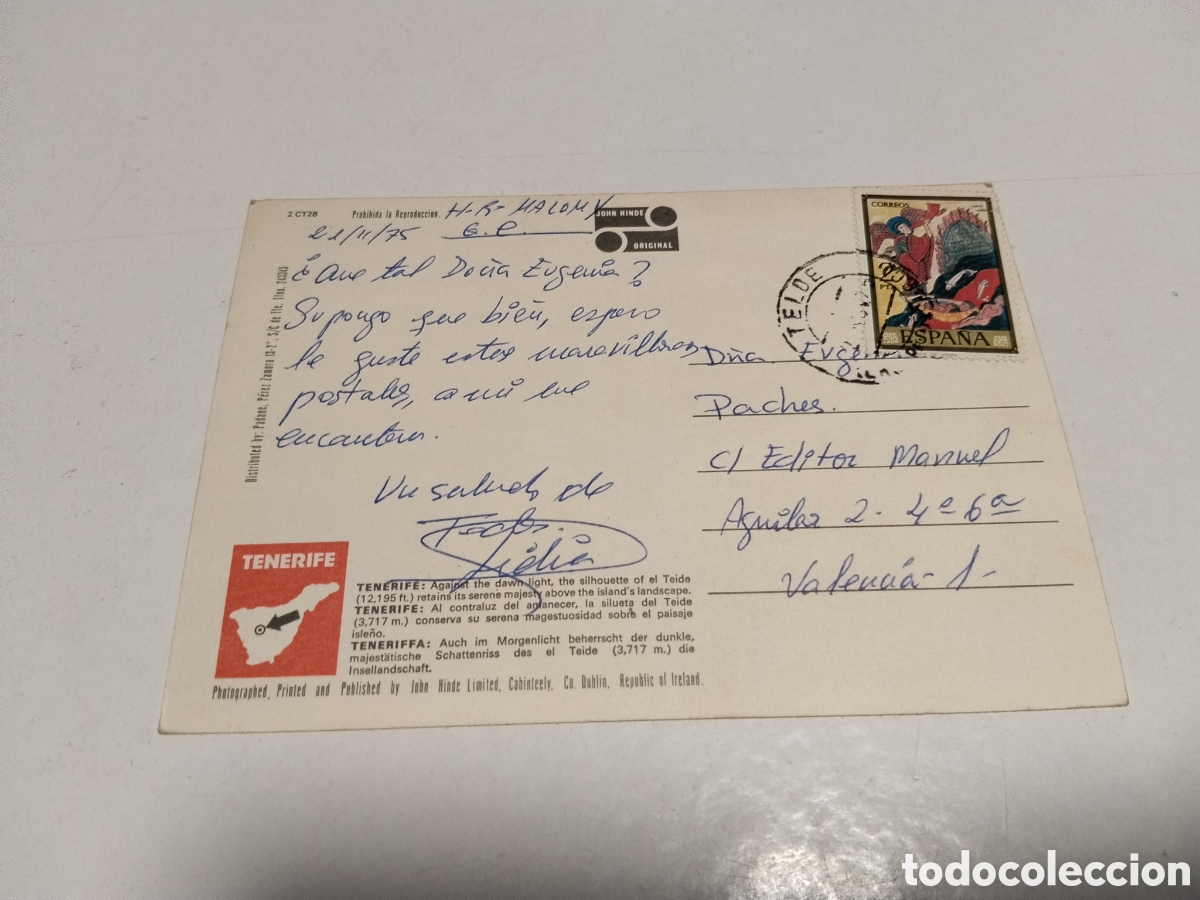 2 CT28
Prohibida la Reproduccion.
JOHN HINDE
ORIGINAL
21/11/75
¿Que tal Doña Eugenia?
Supongo que bien, espero
le guste estas maravillosas
postales, a mi me
encantan.
Un saludo de
CORREOS
PTA
ESPAÑA
TELDE
Dña Eugenia
Paches.
C/ Editor Manuel
Aguilar 2 - 4º 6ª
Valencia - 1 -
Distributed by: Padane, Pérez Zamora 13-2°, S/C de Tfe. Tfno. 243345
TENERIFE
TENERIFE: Against the dawn light, the silhouette of el Teide
(12,195 ft.) retains its serene majesty above the island's landscape.
TENERIFE: Al contraluz del amanecer, la silueta del Teide
(3,717 m.) conserva su serena magestuosidad sobre el paisaje
isleño.
TENERIFFA: Auch im Morgenlicht beherrscht der dunkle,
majestätische Schattenriss des el Teide (3,717 m.) die
Insellandschaft.
Photographed, Printed and Published by John Hinde Limited, Cabinteely, Co. Dublin, Republic of Ireland.
todocoleccion